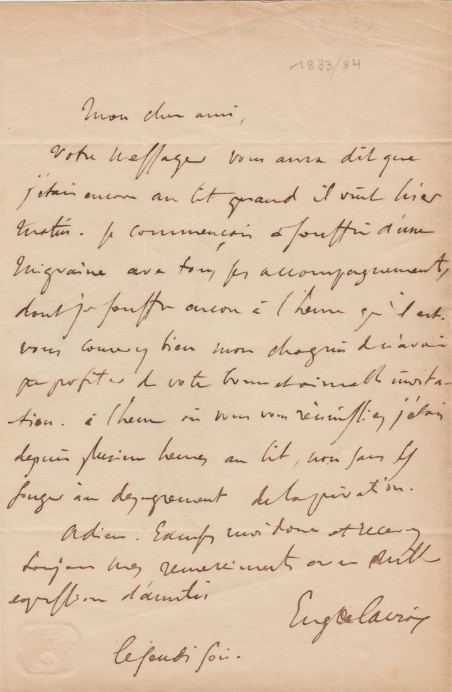 1833/34
Mon cher ami,
Votre messager vous aura dit que
j'étais encore au lit quand il vint hier
matin. je commençais à souffrir d'une
migraine avec tous ses accompagnements
dont je souffre encore à l'heure qu'il est.
vous concevez bien mon chagrin de n'avoir
pu profiter de votre bonne et aimable invita-
tion. à l'heure où vous vous réunissiez j'étais
depuis plusieurs heures au lit, non sans
songer au désagrément de la privation.
Adieu. Excusez moi donc et recevez
toujours mes remerciements avec mille
expression d'amitié
Eug Delacroix
le jeudi soir.